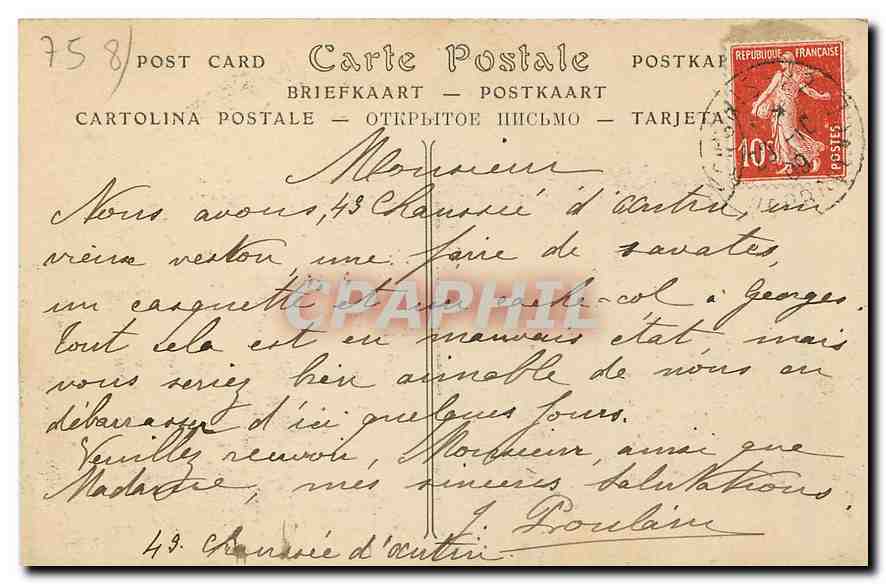 75 8)
POST CARD Carte Postale POSTKAR
BRIEFKAART — POSTKAART
CARTOLINA POSTALE — ОТКРЫТОЕ ПИСЬМО — TARJETA
REPUBLIQUE FRANÇAISE
10c
POSTES
Monsieur
Nous avons, 49 Chaussée d'Antin, un
vieux veston, une paire de savates,
un casquette et un cache-col à Georges.
Tout cela est en mauvais état, mais
vous seriez bien aimable de nous en
débarrasser d'ici quelques jours.
Veuillez recevoir, Monsieur, ainsi que
Madame, mes sincères salutations
J. Poulain
49. Chaussée d'Antin.
CPAPHIL